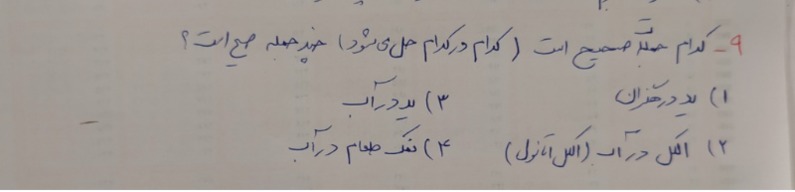 ۹- کدام جمله صحیح است (کدام در کدام حل می‌شود) چند جمله صحیح است؟
۱) ید در هگزان ۳) ید در آب
۲) الکل در آب (الکل اتانول) ۴) نمک طعام در آب